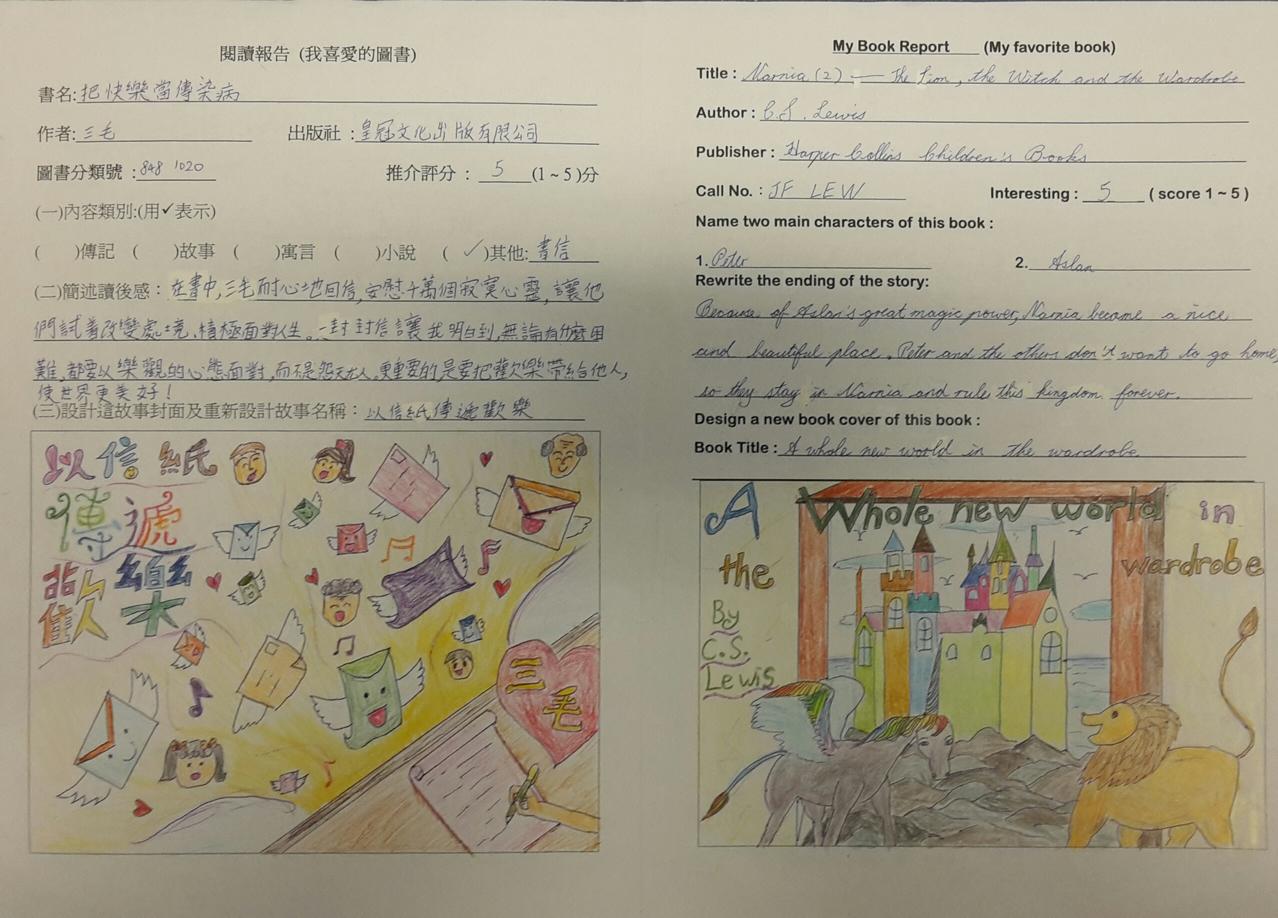 閱讀報告 (我喜愛的圖書)
書名:把快樂當傳染病
作者:三毛 出版社 :皇冠文化出版有限公司
圖書分類號 :848 1020 推介評分 : 5 (1 ~ 5)分
(一)內容類別:(用✓表示)
( )傳記 ( )故事 ( )寓言 ( )小說 ( ✓)其他: 書信
(二)簡述讀後感 : 在書中,三毛耐心地回信,安慰千萬個寂寞心靈,讓他
們試著改變處境、積極面對人生。一封封信讓我明白到,無論有什麼困
難,都要以樂觀的心態面對,而不是怨天尤人。更重要的是要把歡樂帶給他人,
使世界更美好!
(三)設計這故事封面及重新設計故事名稱 : 以信紙傳遞歡樂
以信紙
傳遞
歡樂
三毛
My Book Report (My favorite book)
Title : Narnia (2) — The Lion, the Witch and the Wardrobe
Author : C.S. Lewis
Publisher : Harper Collins Children's Books
Call No. : JF LEW Interesting : 5 ( score 1 ~ 5 )
Name two main characters of this book :
1. Peter 2. Aslan
Rewrite the ending of the story:
Because of Aslan's great magic power, Narnia became a nice
and beautiful place. Peter and the others don't want to go home,
so they stay in Narnia and rule this kingdom forever.
Design a new book cover of this book :
Book Title : A whole new world in the wardrobe
A Whole new world in
the wardrobe
By
C.S.
Lewis